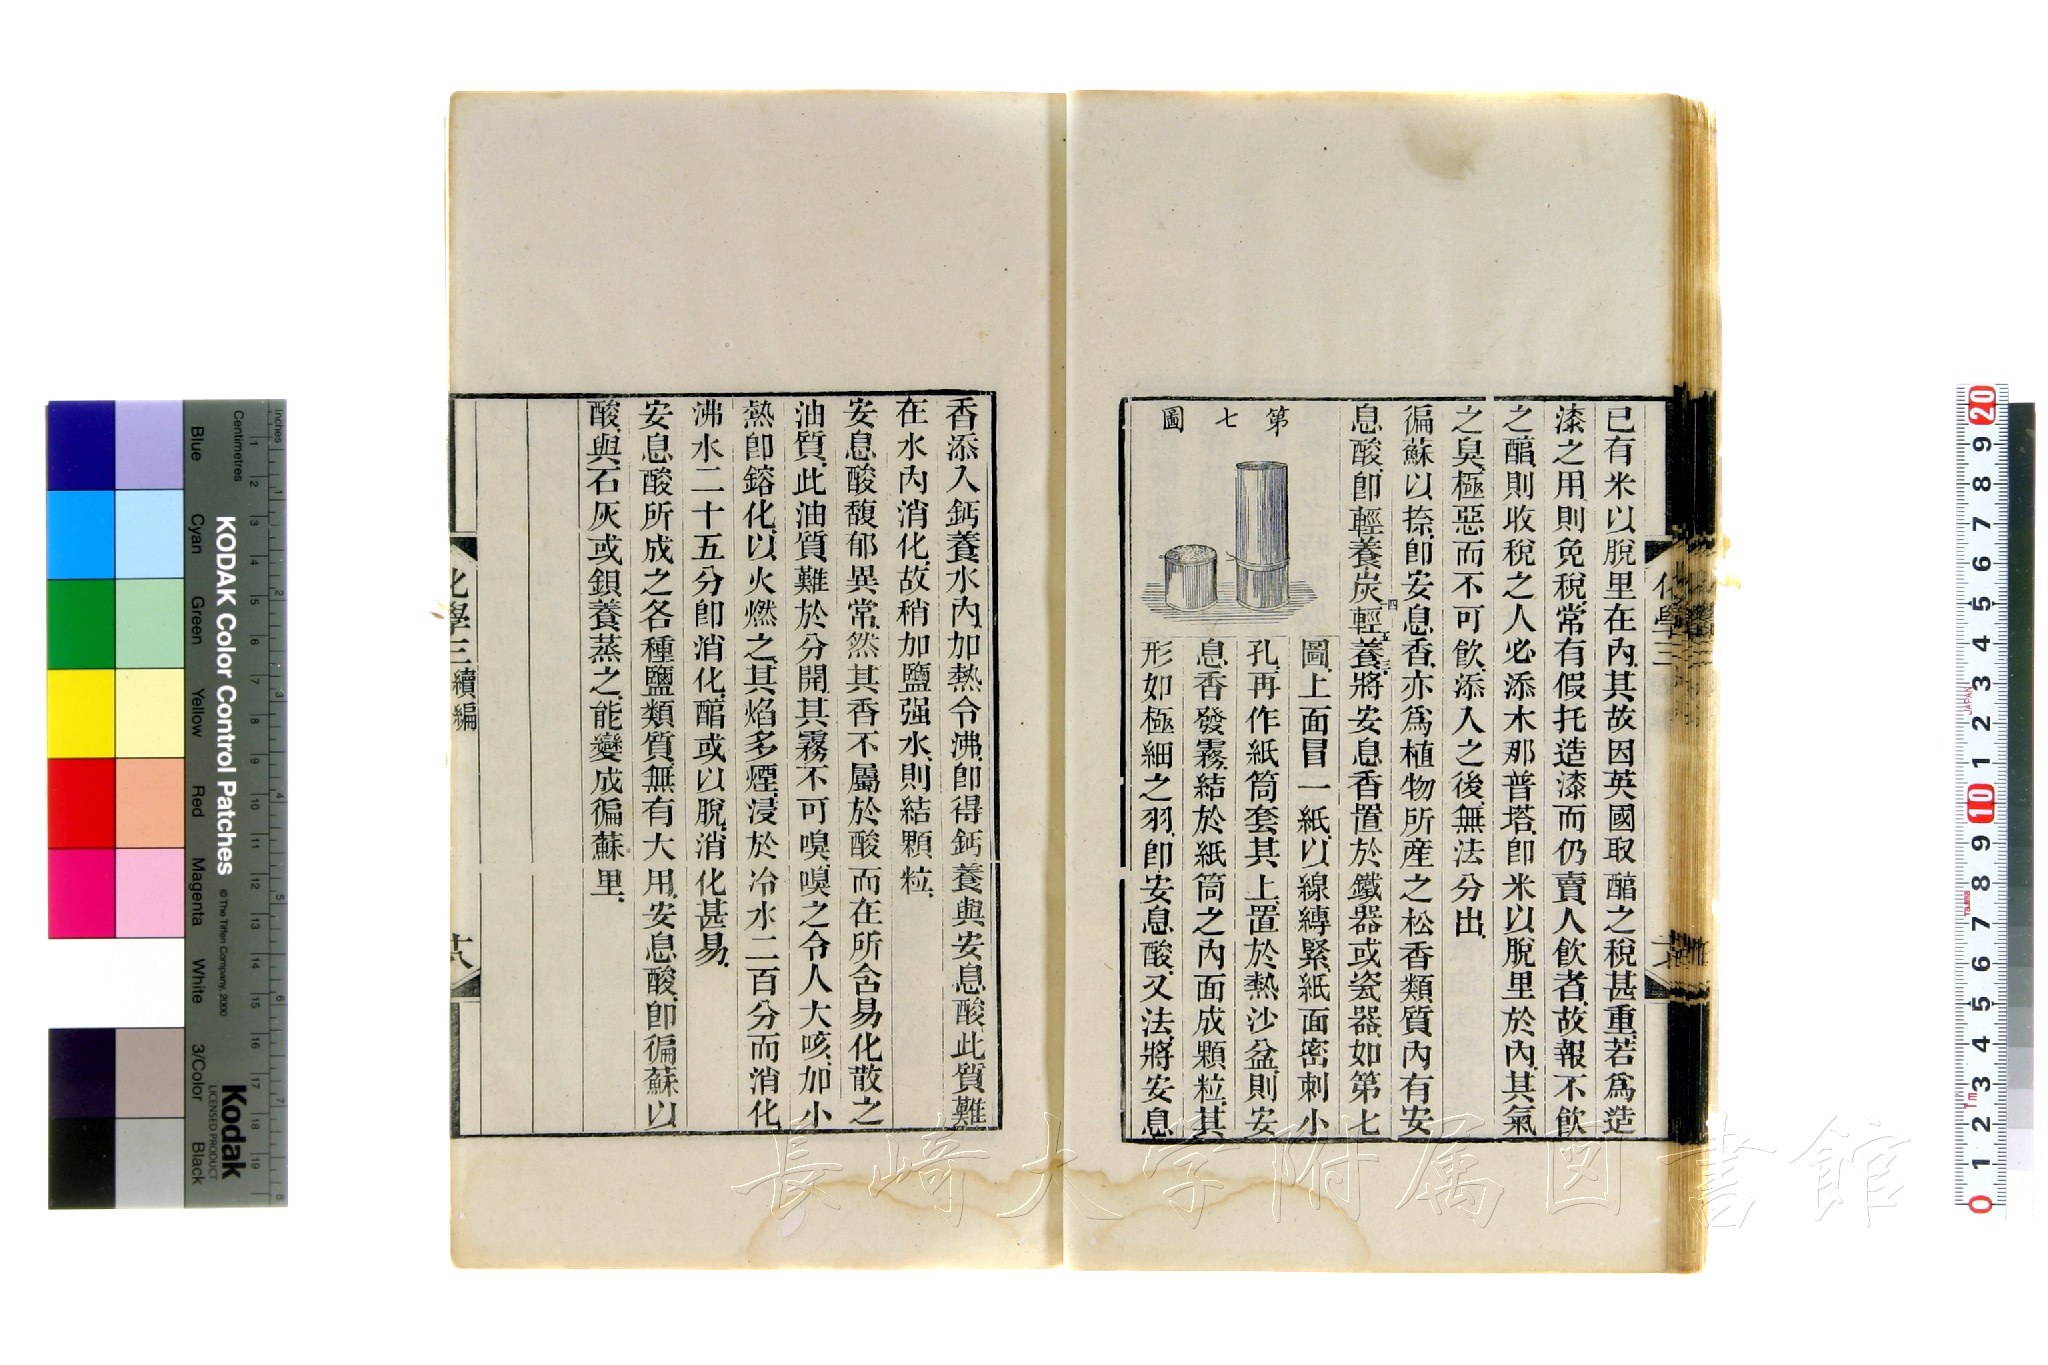 已有米以脫里在內、其故因英國取醕之稅甚重、若爲造
漆之用、則免稅、常有假托造漆而仍賣人飲者、故報不飲
之醕、則收稅之人必添木那普塔、卽米以脫里於內、其氣
之臭、極惡而不可飲、添入之後、無法分出、
徧蘇以捺、卽安息香、亦爲植物所產之松香類質、內有安
息酸、卽輕養炭四輕五養三、將安息香置於鐵器或瓷器、如第七
第七圖
圖、上面冒一紙、以線縛緊、紙面密刺小
孔、再作紙筒套其上、置於熱沙盆、則安
息香發霧、結於紙筒之內面成顆粒、其
形如極細之羽、卽安息酸、又法、將安息
化學三
香添入鈣養水內、加熱令沸、卽得鈣養與安息酸、此質難
在水內消化、故稍加鹽强水、則結顆粒、
安息酸馥郁異常、然其香不屬於酸而在所含易化散之
油質、此油質難於分開、其霧不可嗅、嗅之令人大咳、加小
熱卽鎔化、以火燃之、其焰多煙、浸於冷水二百分而消化
沸水二十五分卽消化、醕或以脫、消化甚易、
安息酸所成之各種鹽類質、無有大用、安息酸、卽徧蘇以
酸、與石灰或鋇養蒸之、能變成徧蘇里、
化學三續編
長崎大学附属図書館
KODAK Color Control Patches
© The Tiffen Company, 2000
Kodak
LICENSED PRODUCT
Inches
Centimetres
Blue
Cyan
Green
Yellow
Red
Magenta
White
3/Color
Black
1 2 3 4 5 6 7 8 9 10 11 12 13 14 15 16 17 18 19
1 2 3 4 5 6 7 8
20 9 8 7 6 5 4 3 2 1 10 9 8 7 6 5 4 3 2 1 0
JAPAN
Tajima
1m